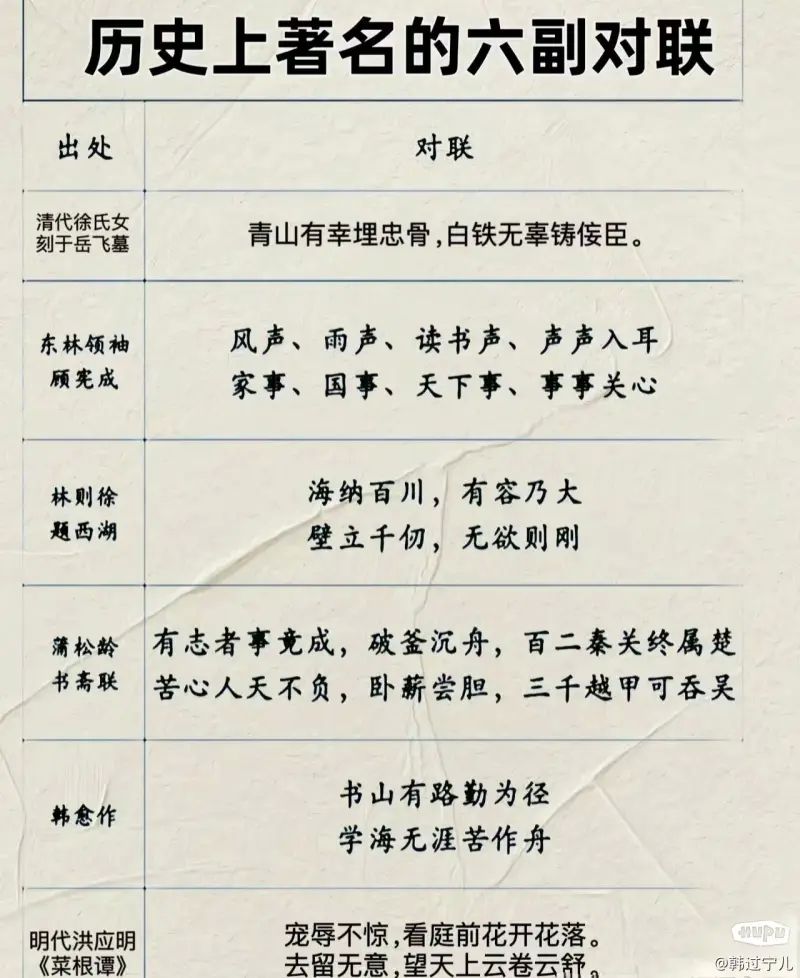 历史上著名的六副对联
出处
对联
清代徐氏女
刻于岳飞墓
青山有幸埋忠骨,白铁无辜铸侫臣。
东林领袖
顾宪成
风声、雨声、读书声、声声入耳
家事、国事、天下事、事事关心
林则徐
题西湖
海纳百川，有容乃大
壁立千仞，无欲则刚
蒲松龄
书斋联
有志者事竟成，破釜沉舟，百二秦关终属楚
苦心人天不负，卧薪尝胆，三千越甲可吞吴
韩愈作
书山有路勤为径
学海无涯苦作舟
明代洪应明
《菜根谭》
宠辱不惊,看庭前花开花落。
去留无意,望天上云卷云舒。
HUPU
@韩过宁儿